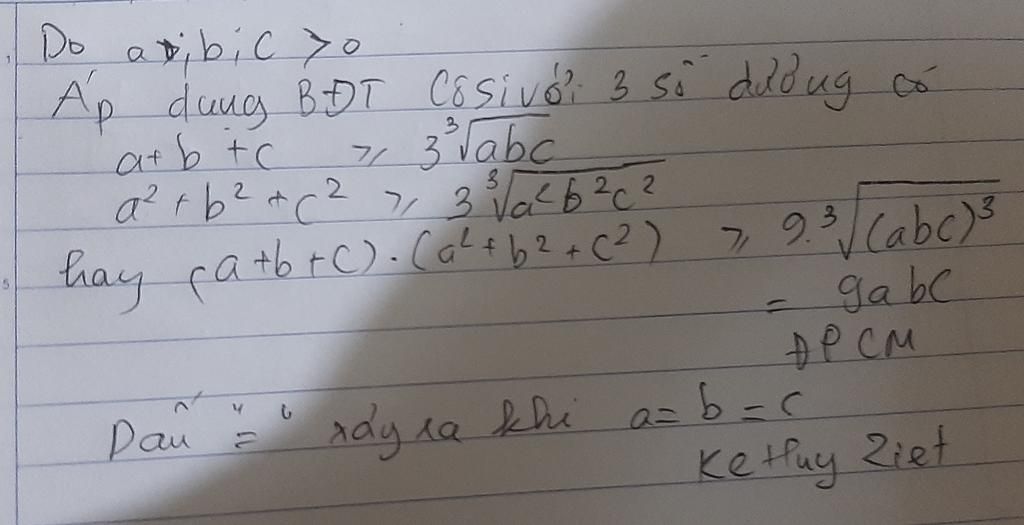 Do a, b, c > 0
Áp dụng BĐT Côsi với 3 số dương có
a + b + c ≥ 3∛abc
a² + b² + c² ≥ 3∛a²b²c²
hay (a + b + c).(a² + b² + c²) ≥ 9.∛(abc)³
= 9abc
ĐPCM
Dấu "=" xảy ra khi a = b = c